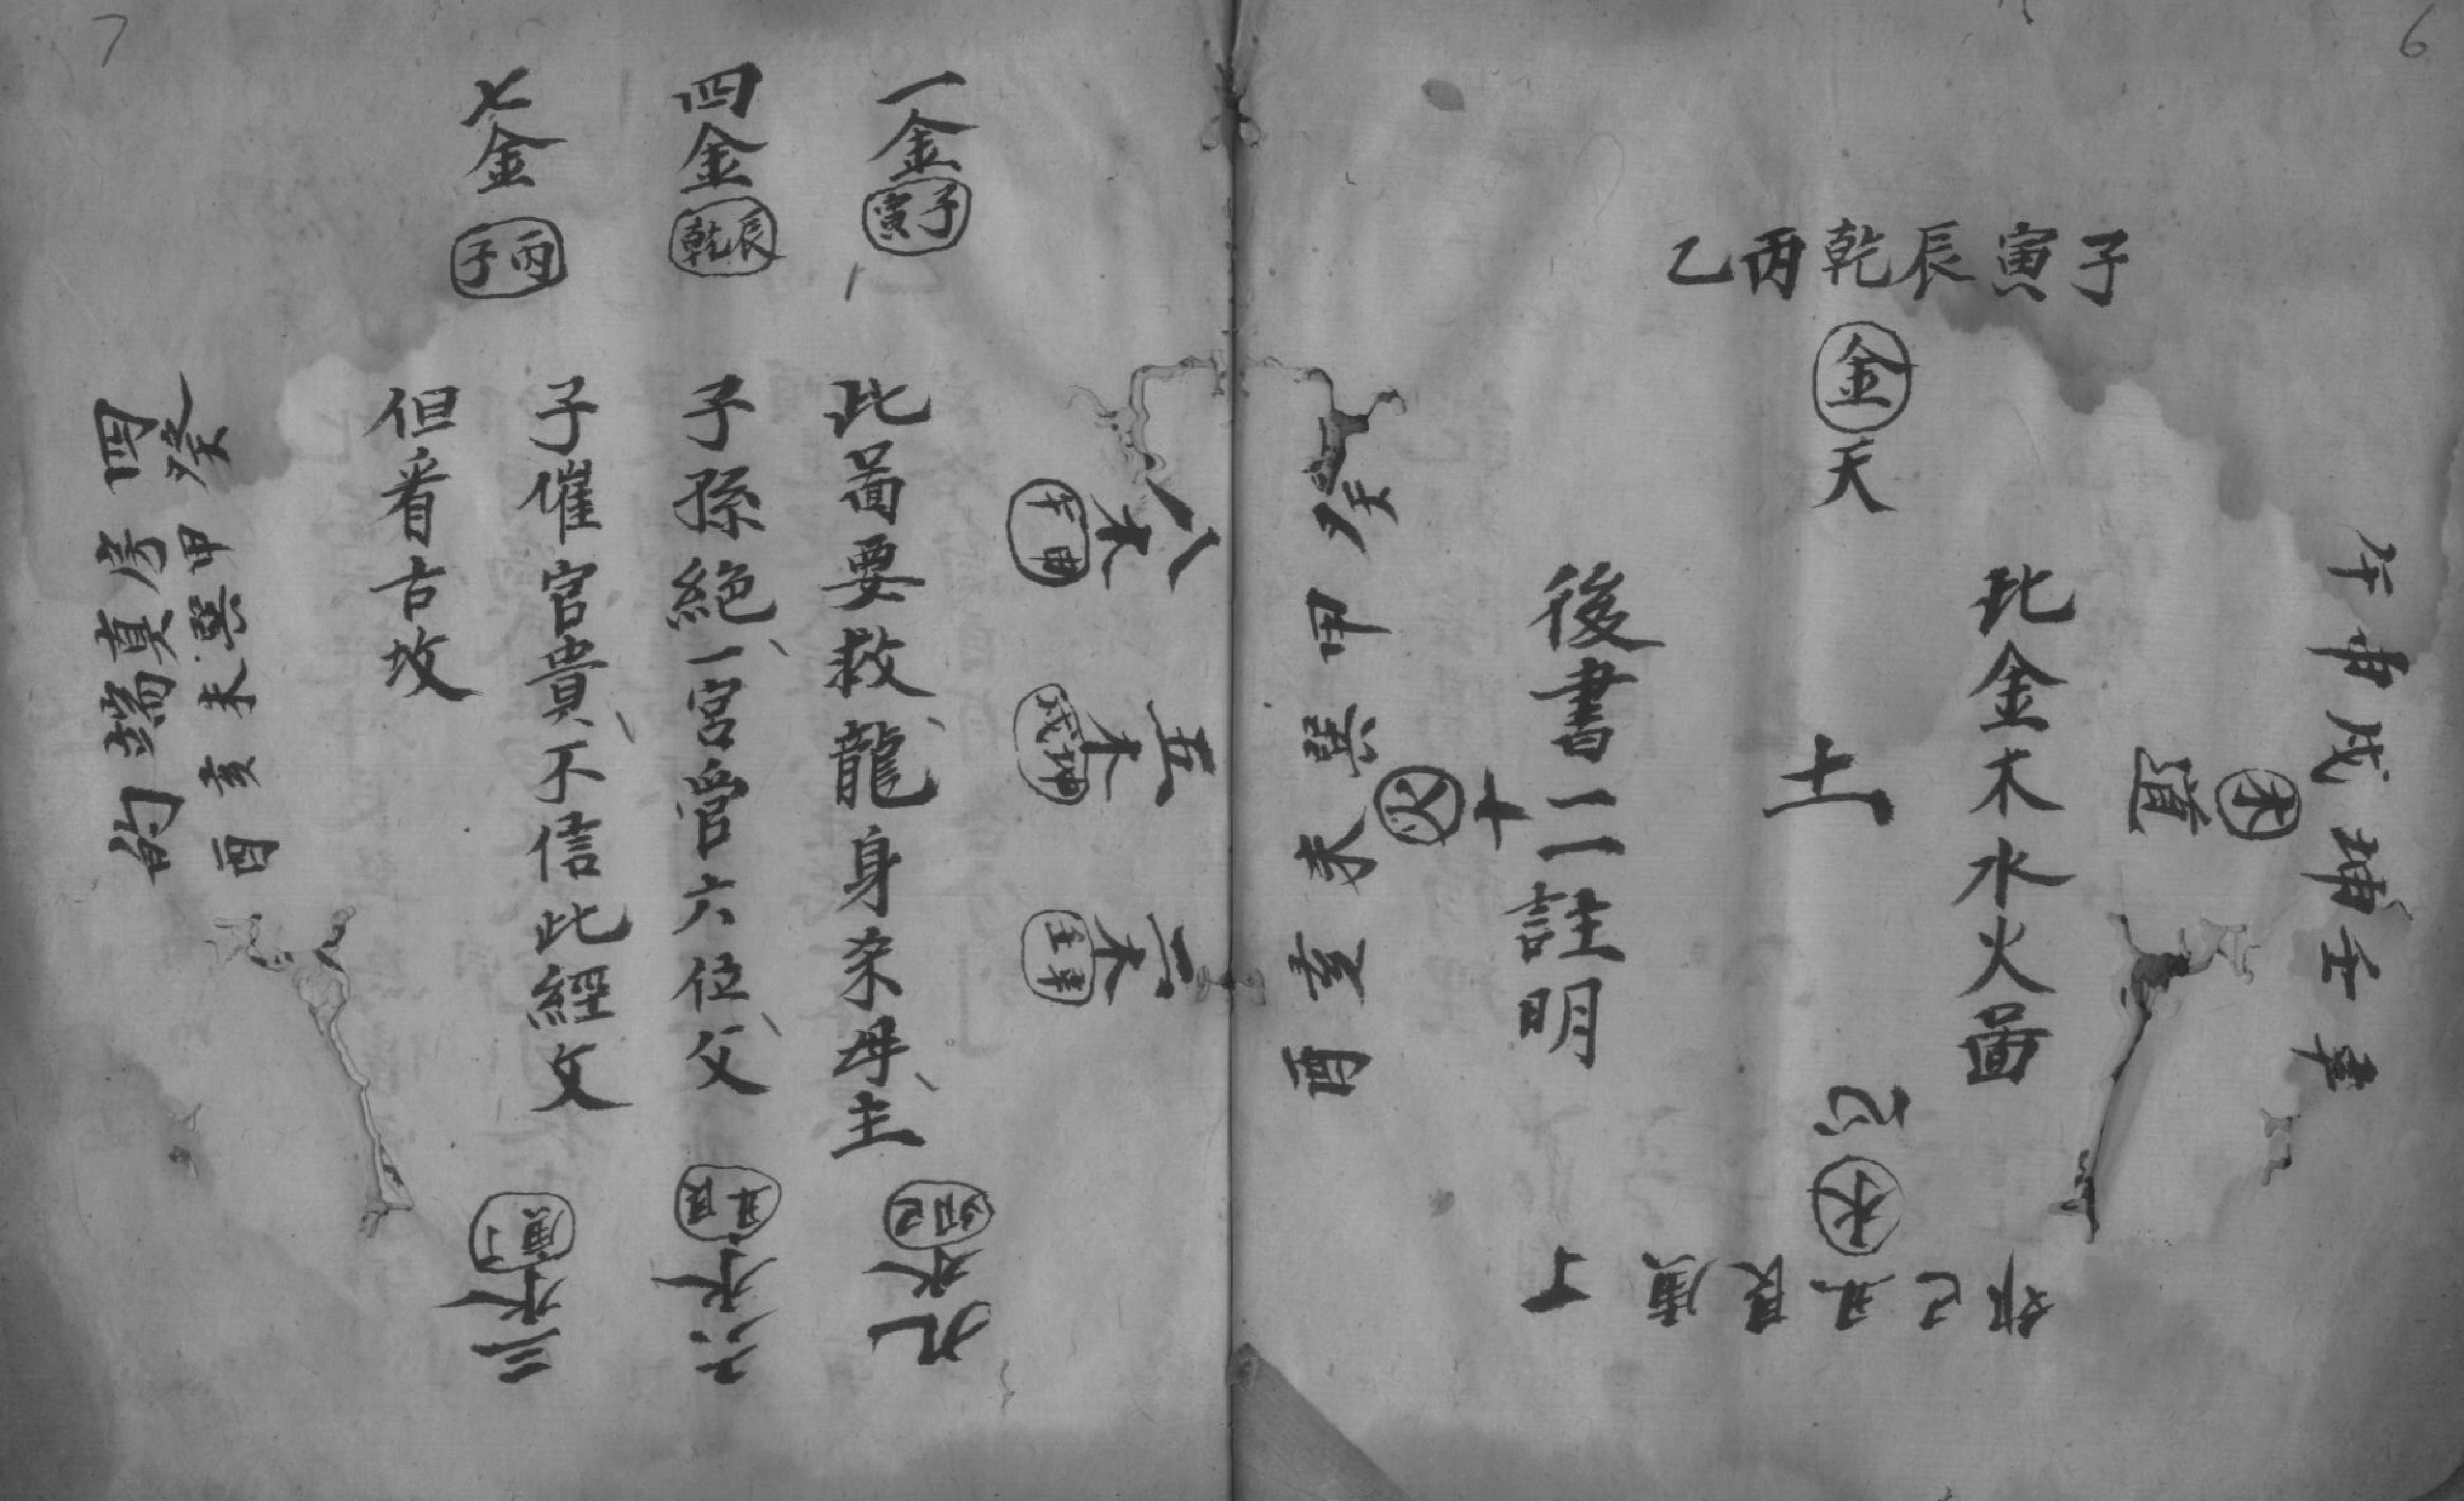 6
子寅辰乾丙乙
金
天
午申戌坤壬辛
木
道
此金木水火啚
土
後書二一註明
心
水
卯巳丑艮庚丁
火
十
癸甲巽未亥酉
7
一金
子寅
四金
辰乾
七金
丙子
八木
申午
五木
坤戌
二木
辛壬
此啚要救龍身杀母主
子孫絕一宮管六位父
子催官貴不信此經文
但看古坟
九水
卯巳
六水
丑艮
三水
庚丁
癸甲巽未亥酉
四房真端的